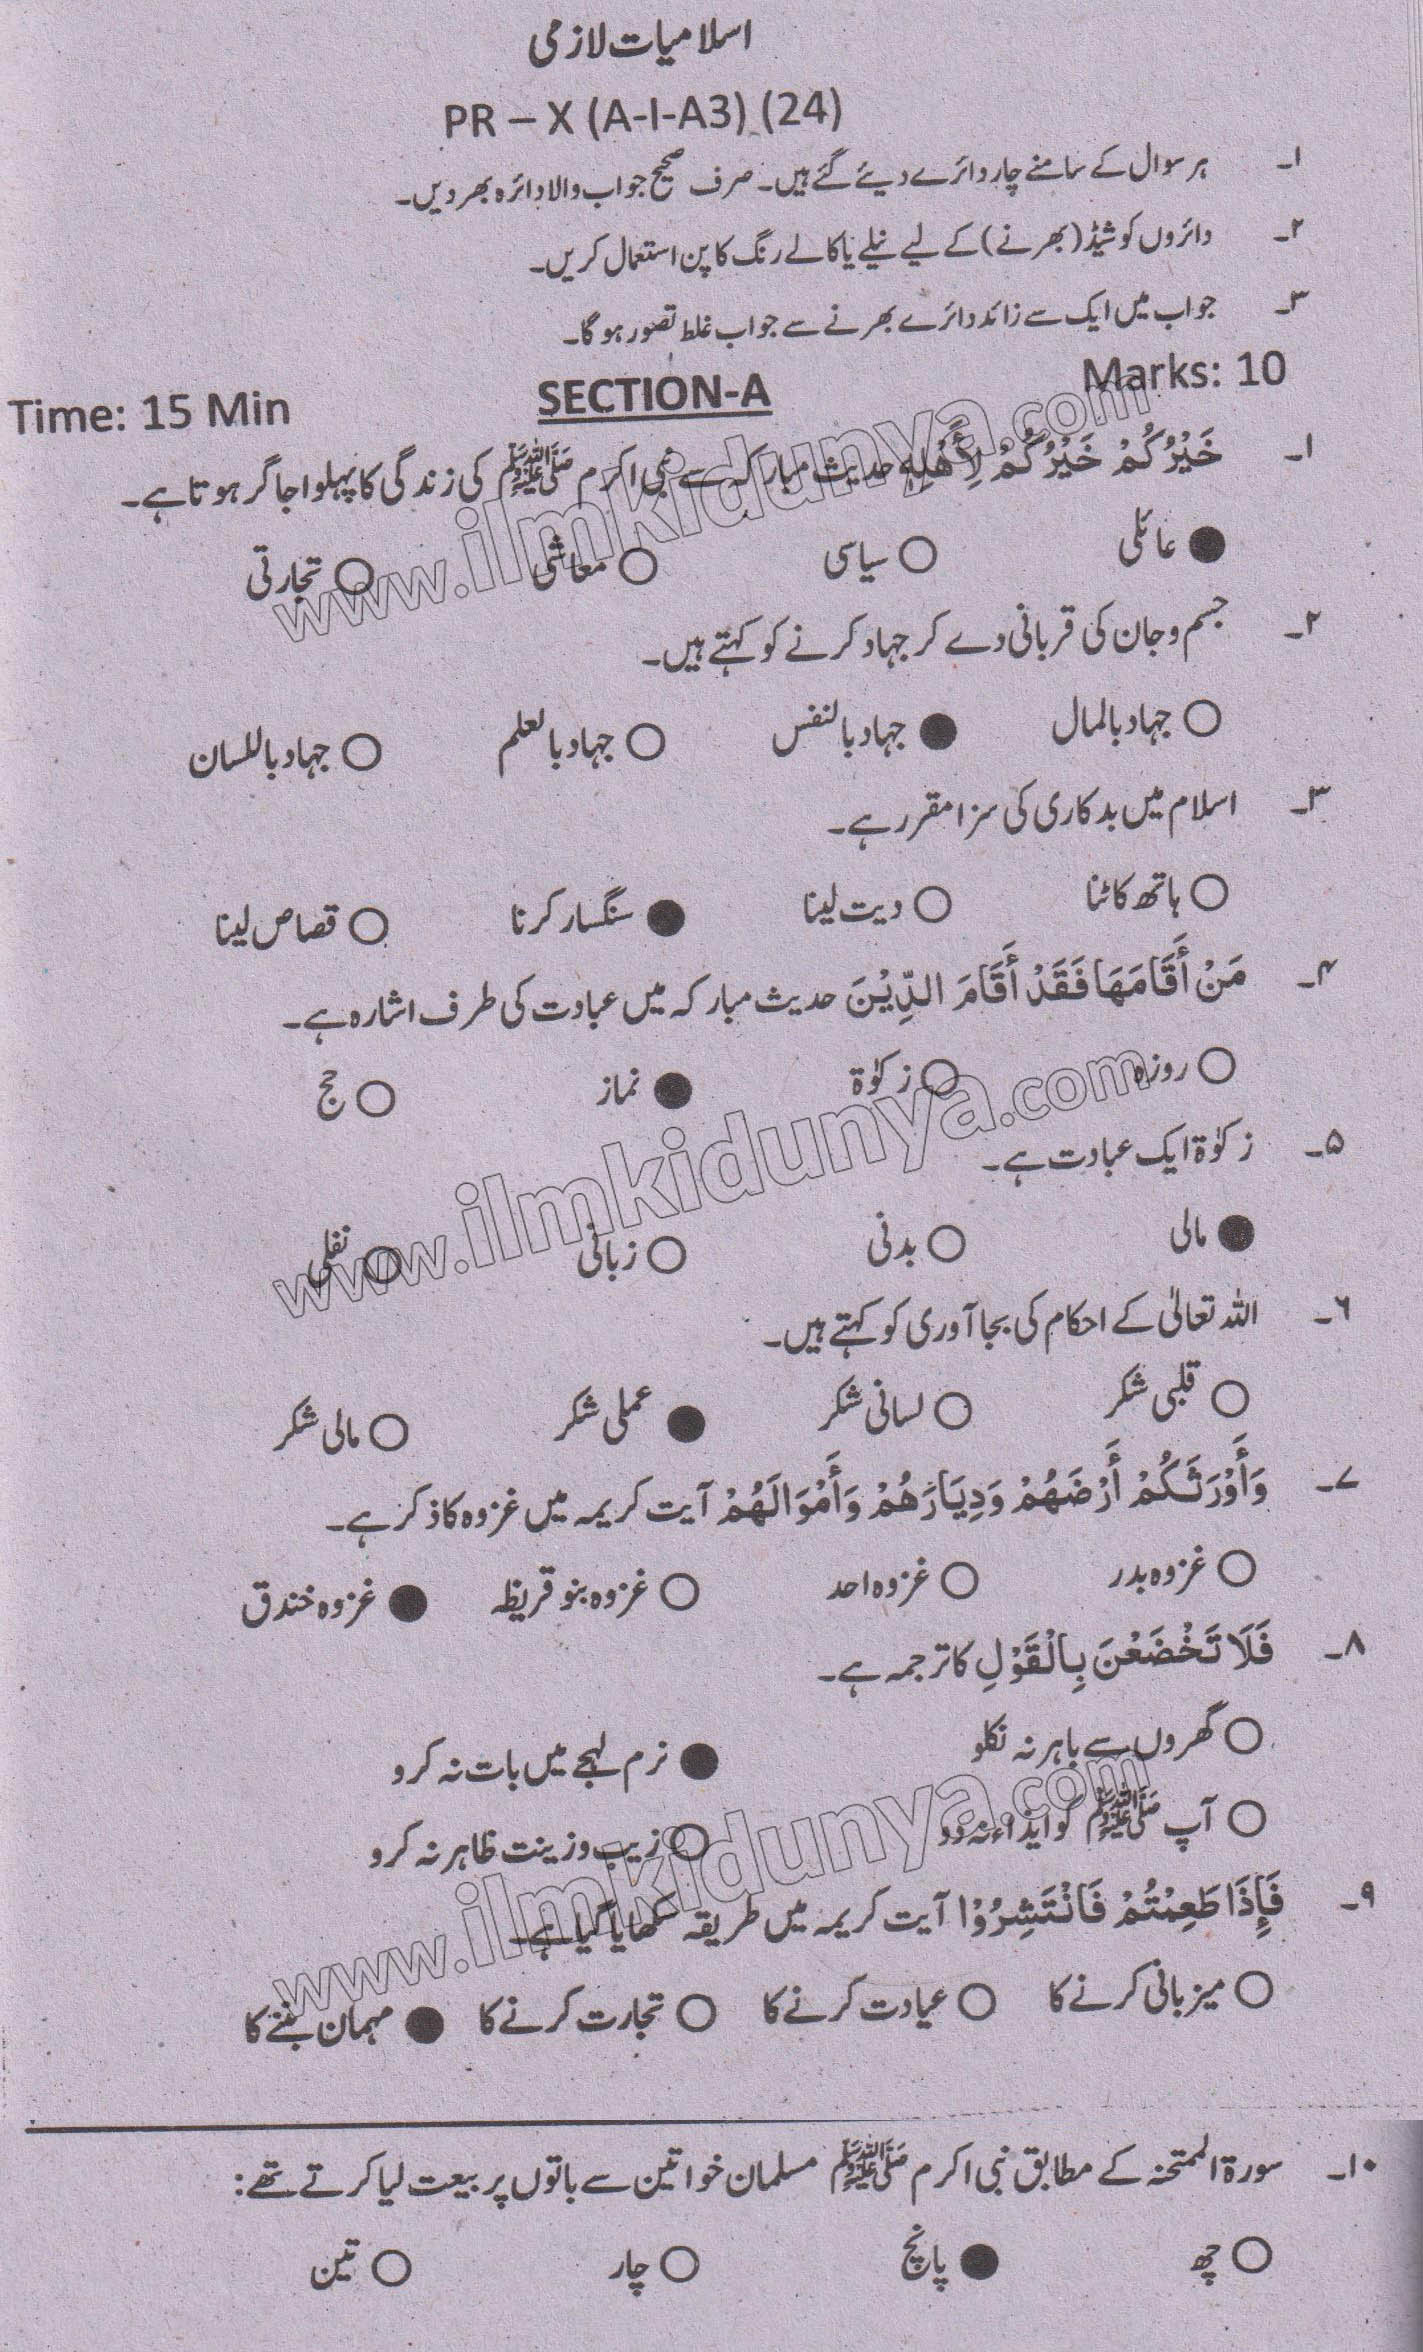 اسلامیات لازمی
PR – X (A-I-A3) (24)
۱۔ ہر سوال کے سامنے چار دائرے دیئے گئے ہیں۔ صرف صحیح جواب والا دائرہ بھر دیں۔
۲۔ دائروں کو شیڈ (بھرنے) کے لیے نیلے یا کالے رنگ کا پن استعمال کریں۔
۳۔ جواب میں ایک سے زائد دائرے بھرنے سے جواب غلط تصور ہو گا۔
Time: 15 Min SECTION-A Marks: 10
۱۔ خَيْرُكُمْ خَيْرُكُمْ لِأَهْلِهٖ حدیث مبارکہ سے نبی اکرم ﷺ کی زندگی کا پہلو اجاگر ہوتا ہے۔
● عائلی ○ سیاسی ○ معاشی ○ تجارتی
۲۔ جسم و جان کی قربانی دے کر جہاد کرنے کو کہتے ہیں۔
○ جہاد بالمال ● جہاد بالنفس ○ جہاد بالعلم ○ جہاد باللسان
۳۔ اسلام میں بدکاری کی سزا مقرر ہے۔
○ ہاتھ کاٹنا ○ دیت لینا ● سنگسار کرنا ○ قصاص لینا
۴۔ مَنْ أَقَامَهَا فَقَدْ أَقَامَ الدِّيْنَ حدیث مبارکہ میں عبادت کی طرف اشارہ ہے۔
○ روزہ ○ زکوٰۃ ● نماز ○ حج
۵۔ زکوٰۃ ایک عبادت ہے۔
● مالی ○ بدنی ○ زبانی ○ نفلی
۶۔ اللہ تعالیٰ کے احکام کی بجا آوری کو کہتے ہیں۔
○ قلبی شکر ○ لسانی شکر ● عملی شکر ○ مالی شکر
۷۔ وَأَوْرَثَكُمْ أَرْضَهُمْ وَدِيَارَهُمْ وَأَمْوَالَهُمْ آیت کریمہ میں غزوہ کا ذکر ہے۔
○ غزوہ بدر ○ غزوہ احد ○ غزوہ بنو قریظہ ● غزوہ خندق
۸۔ فَلَا تَخْضَعْنَ بِالْقَوْلِ کا ترجمہ ہے۔
○ گھروں سے باہر نہ نکلو ● نرم لہجے میں بات نہ کرو
○ آپ ﷺ کو ایذاء نہ دو ○ زیب و زینت ظاہر نہ کرو
۹۔ فَإِذَا طَعِمْتُمْ فَانْتَشِرُوْا آیت کریمہ میں طریقہ سکھایا گیا ہے۔
○ میزبانی کرنے کا ○ عیادت کرنے کا ○ تجارت کرنے کا ● مہمان بننے کا
۱۰۔ سورۃ الممتحنہ کے مطابق نبی اکرم ﷺ مسلمان خواتین سے باتوں پر بیعت لیا کرتے تھے:
○ چھ ● پانچ ○ چار ○ تین
www.ilmkidunya.com
www.ilmkidunya.com
www.ilmkidunya.com